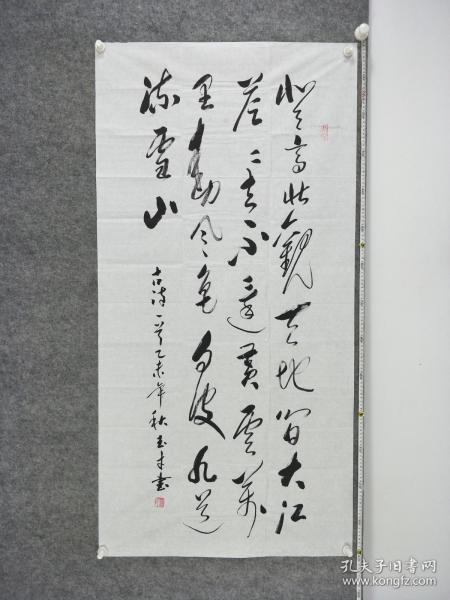 登高壮觀天地间大江
茫茫去不還黄雲萬
里動風色白波九道
流雪山
古诗一首乙未年秋玉才書
孔夫子旧书网
www.kongfz.com